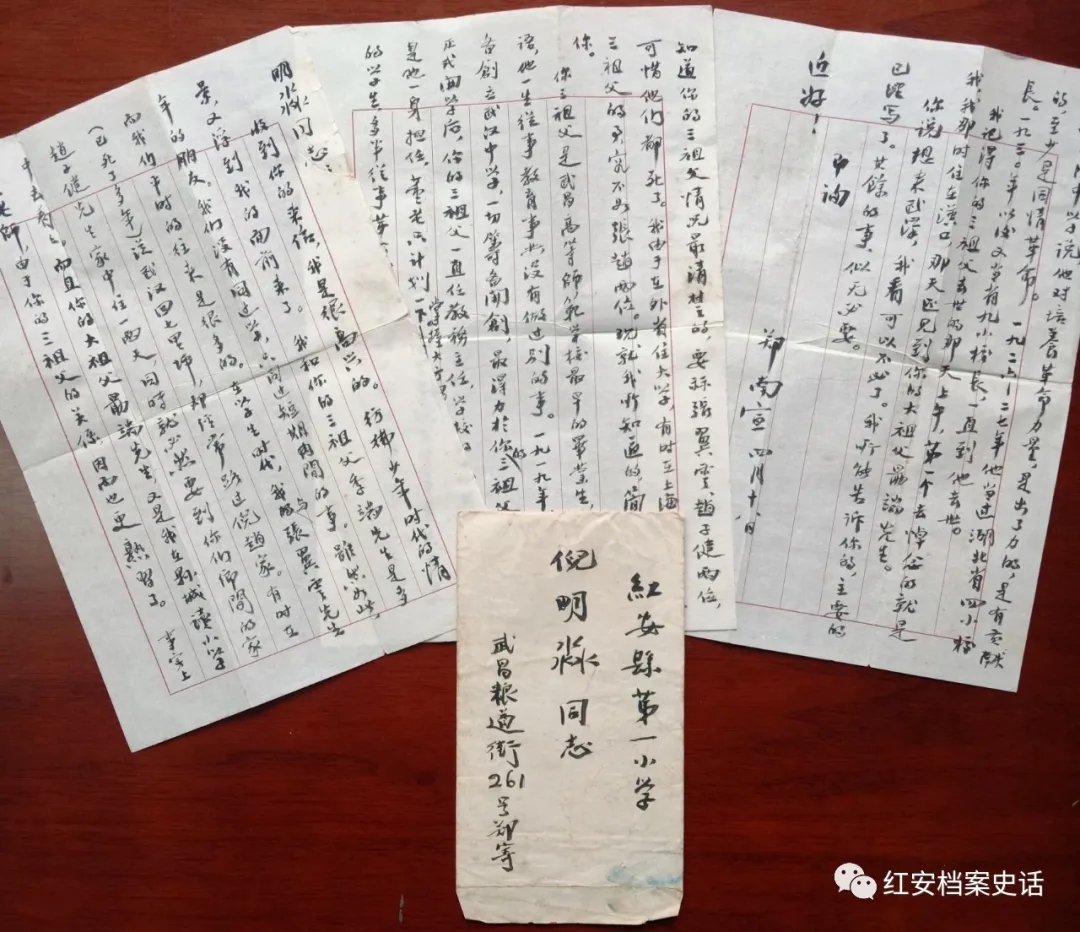 明淼同志：
收到你的来信，我是很高兴的。彷彿少年时代的情
景，又浮到我的面前来了。我和你的三祖父季端先生是多
年的朋友。我们没有同过学，只同过短期间的事。虽然如此，
而我们平时的往来是很多的。在学生时代，我与張翼雲先生
（已死了多年）往武汉回七里坪，却经常路过倪趙家。有时在
趙子健先生家中住一两天，同时就必然要到你们倪閣的家
中去看看。而且你的大祖父最端先生，又是我在县城读小学
老师，由于你的三祖父的关係，因而也更熟習了。事实上
知道你的三祖父情况最清楚的，要孙張翼雲、趙子健两位，
可惜他们都死了。我由于在外省住大学，有时在上海
三祖父的事究不如張趙两位。现就我所知道的简
你。
你三祖父是武昌高等師范学校最早的畢業生，
语，他一生从事教育事业没有做过别的事。一九一九年
备創立武汉中学，一切筹备開創，最得力於你的三祖父
正式開学后，你的三祖父一直任教務主任，学校的
是他一身担任，董老只计划一下。
的学生多半從事革
的，至少是同情革命。
中学说他对培養革命力量，是出了力的，是有贡献
一九二六—二七年他当过湖北省四小校
長。一九三〇年以後又当省九小校長，一直到他去世。
我记得你的三祖父去世的那一天上午，第一个去悼唁的就是
我，我那时住在漢口，那天还见到你的大祖父最端先生。
你说想来武漢，我看可以不必了。我所能告诉你的，主要的
已经写了。其餘的事，似无必要。
即询
近好！
郑南宣 四月十八日
紅安縣第一小学
倪明淼同志
武昌粮道街261号郑寄
红安档案史话